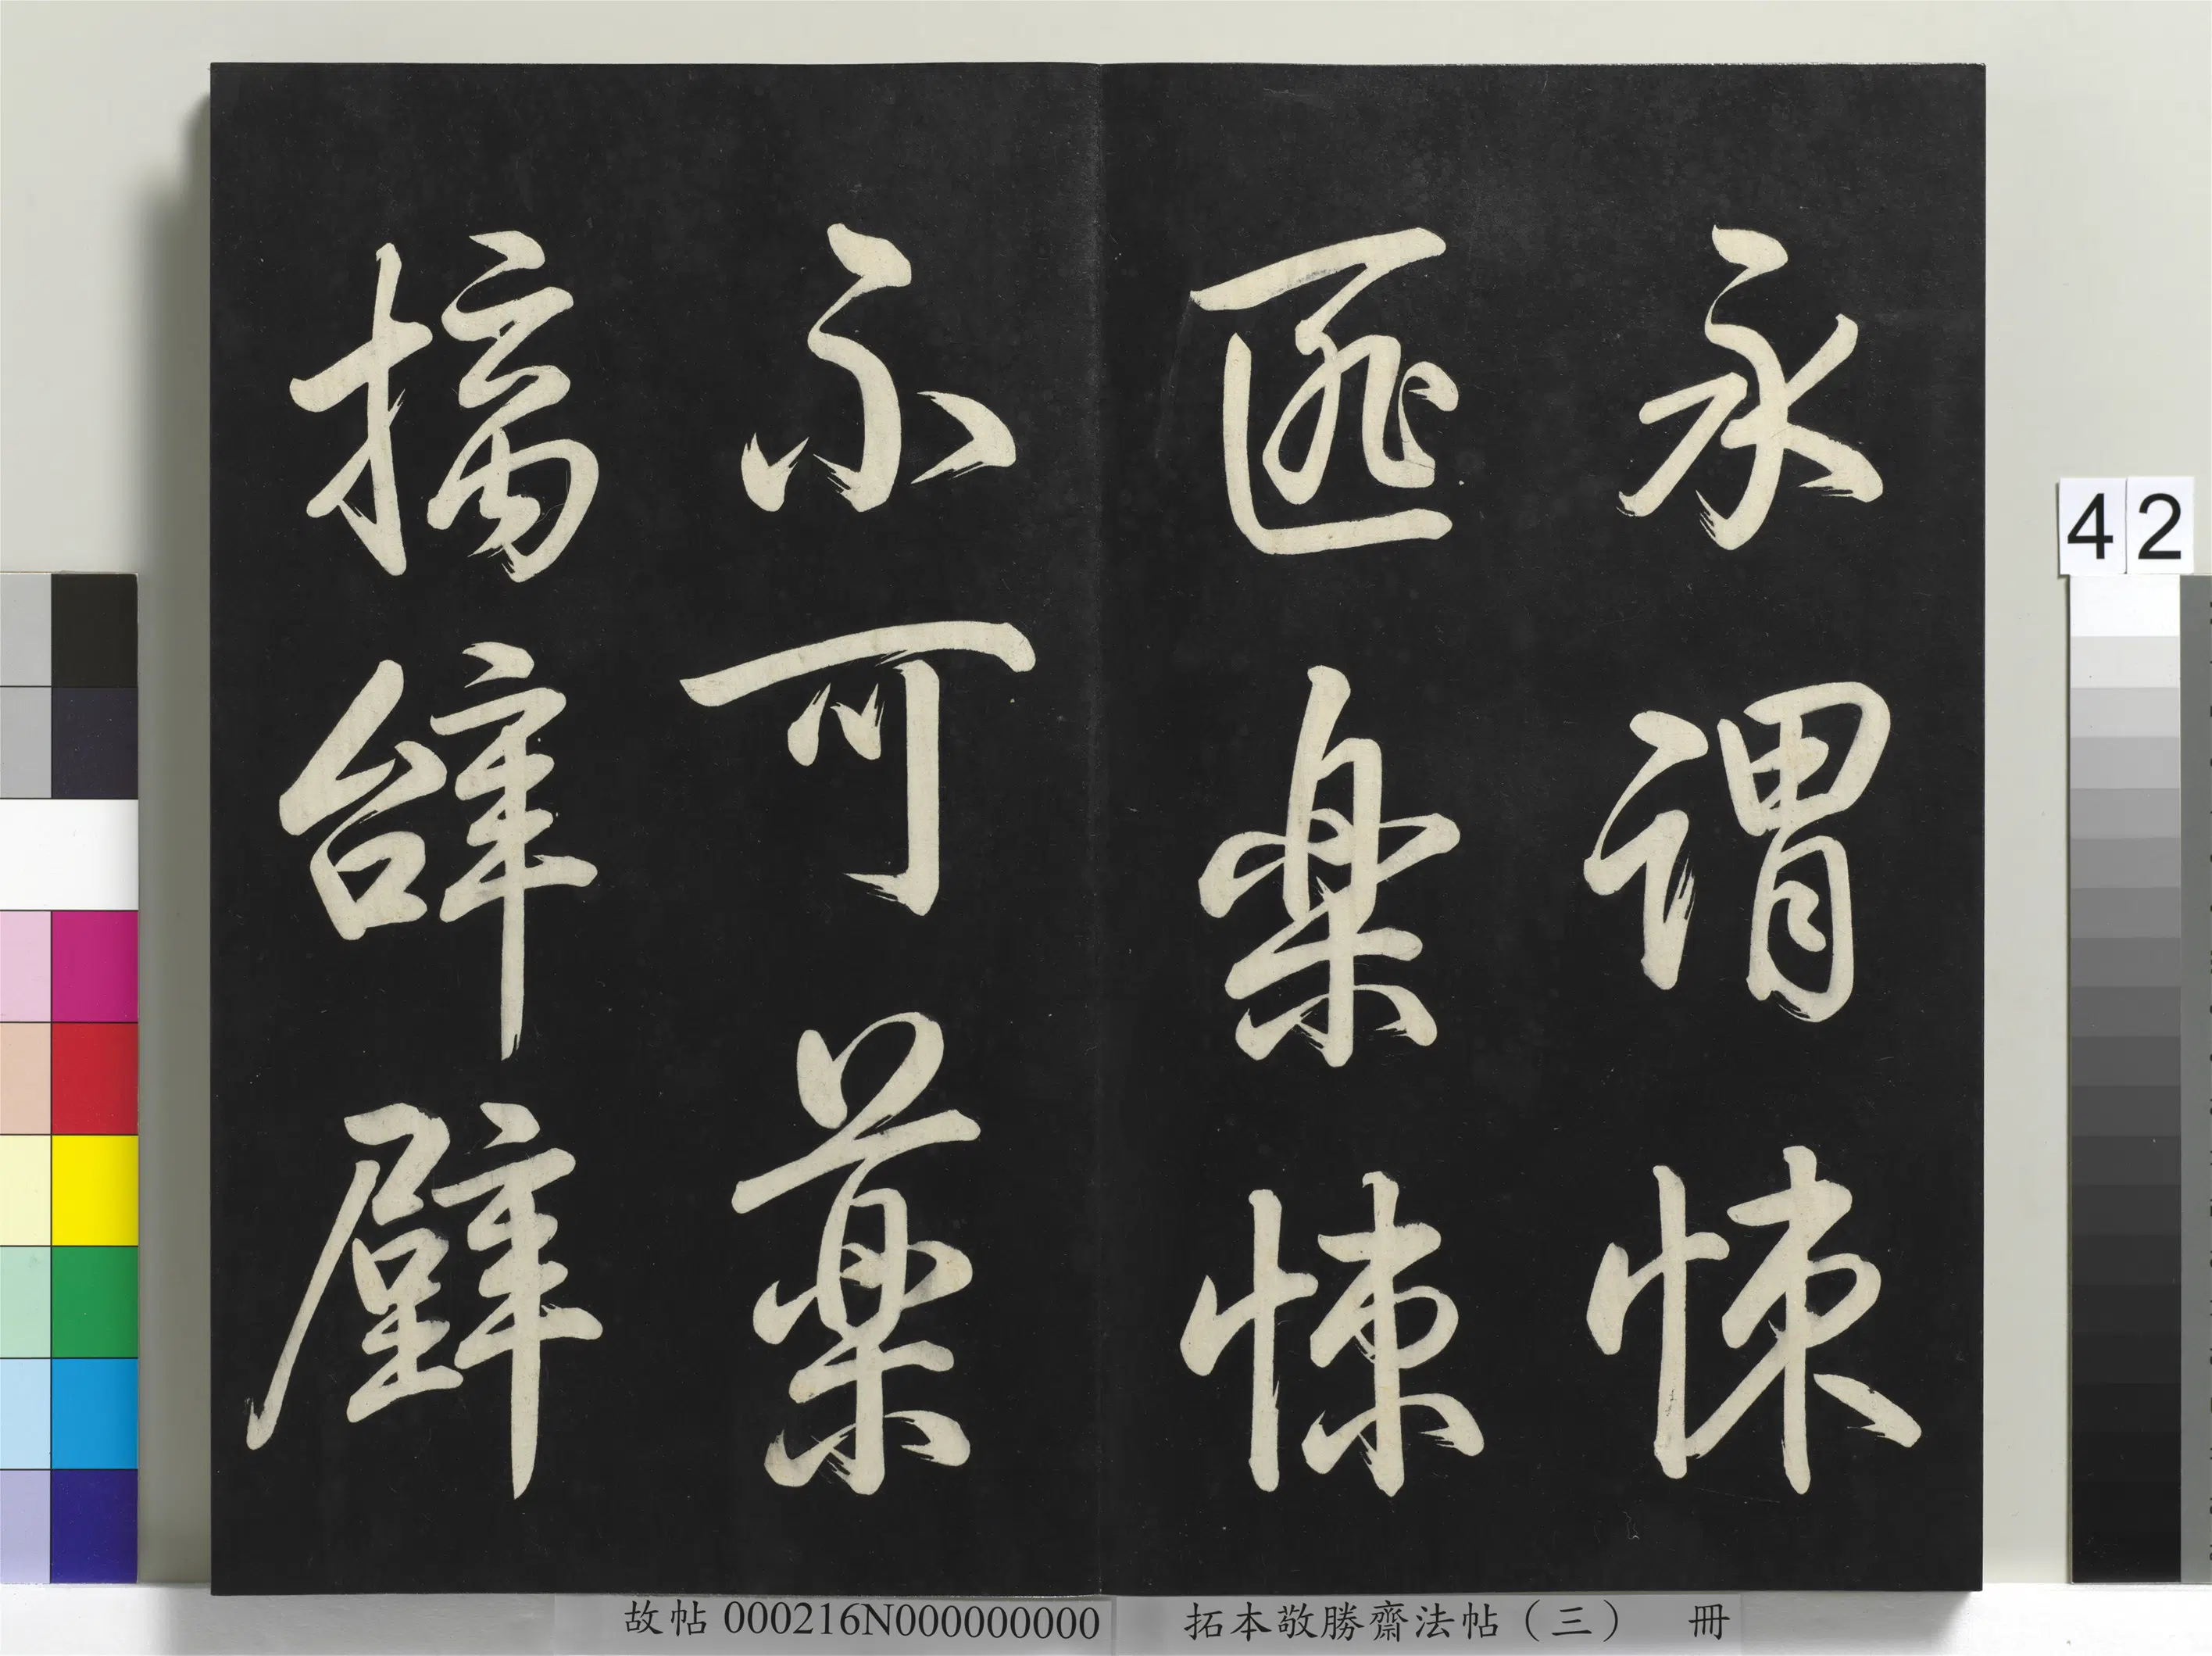 永謂悚
匪樂悚
不可藥
摛辭璧
42
故帖000216N000000000 拓本敬勝齋法帖（三） 冊